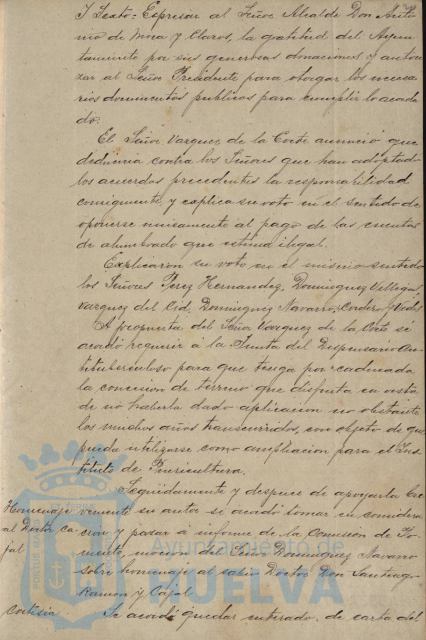 y Sexto: Expresar al Señor Alcalde Don Anto
nio de Mora y Claros, la gratitud del Ayun
tamiento por sus generosas donaciones y autori
zar al Señor Presidente para otorgar los necesa
rios documentos públicos para cumplir lo acorda
do.
El Señor Vazquez de la Corte anunció que
deduciria contra los Señores que han adoptado
los acuerdos precedentes la responsabilidad
consiguiente, y explica su voto en el sentido de
oponerse unicamente al pago de las cuentas
de alumbrado que estima ilegal.
Explicaron su voto en el mismo sentido
los Señores Perez Hernandez, Dominguez Villegas,
Vazquez del Cid, Dominguez Navarro, Cordero y Vides
A propuesta del Señor Vazquez de la Corte se
acordó requerir á la Junta del Dispensario An
tituberculoso para que tenga por caducada
la concesion de terreno que disfruta en vista
de no haberla dado aplicacion no obstante
los muchos años transcurridos, con objeto de que
pueda utilizarse como ampliacion para el Ins
tituto de Puericultura.
Seguidamente y despues de apoyarla bre
Homenaje vemente su autor se acordó tomar en considera
al Doctor Ca cion y pasar á informe de la Comision de Fo
jal mento, mocion del Señor Dominguez Navarro
sobre homenaje al sabio Doctor Don Santiago
Ramon y Cajal
Cortesia. Se acordó quedar enterado de carta del
Ayuntamiento de
HUELVA